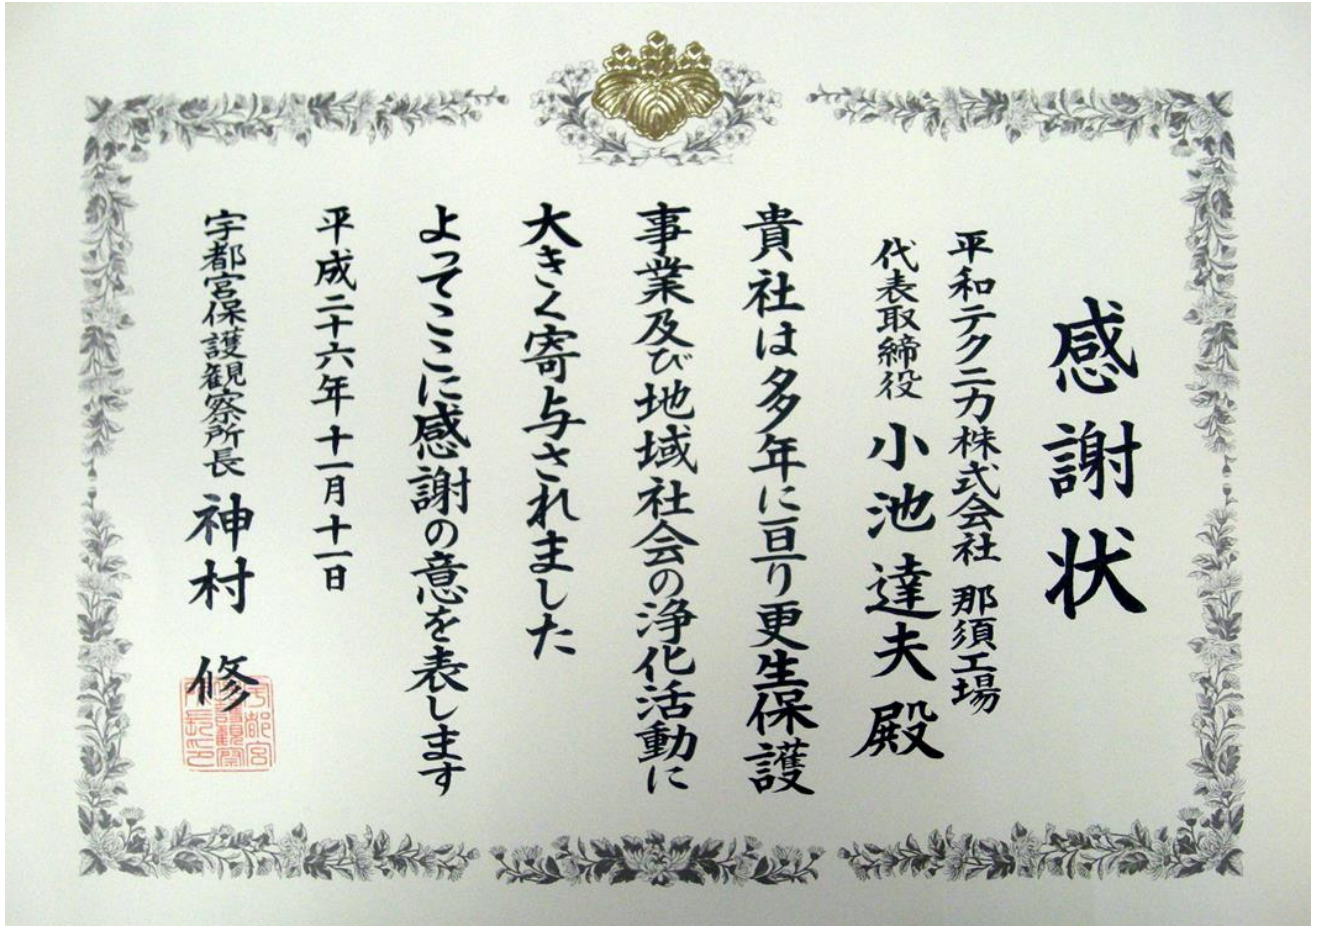 感謝状
平和テクニカ株式会社 那須工場
代表取締役 小池達夫殿
貴社は多年に亘り更生保護
事業及び地域社会の浄化活動に
大きく寄与されました
よってここに感謝の意を表します
平成二十六年十一月十一日
宇都宮保護観察所長 神村 修